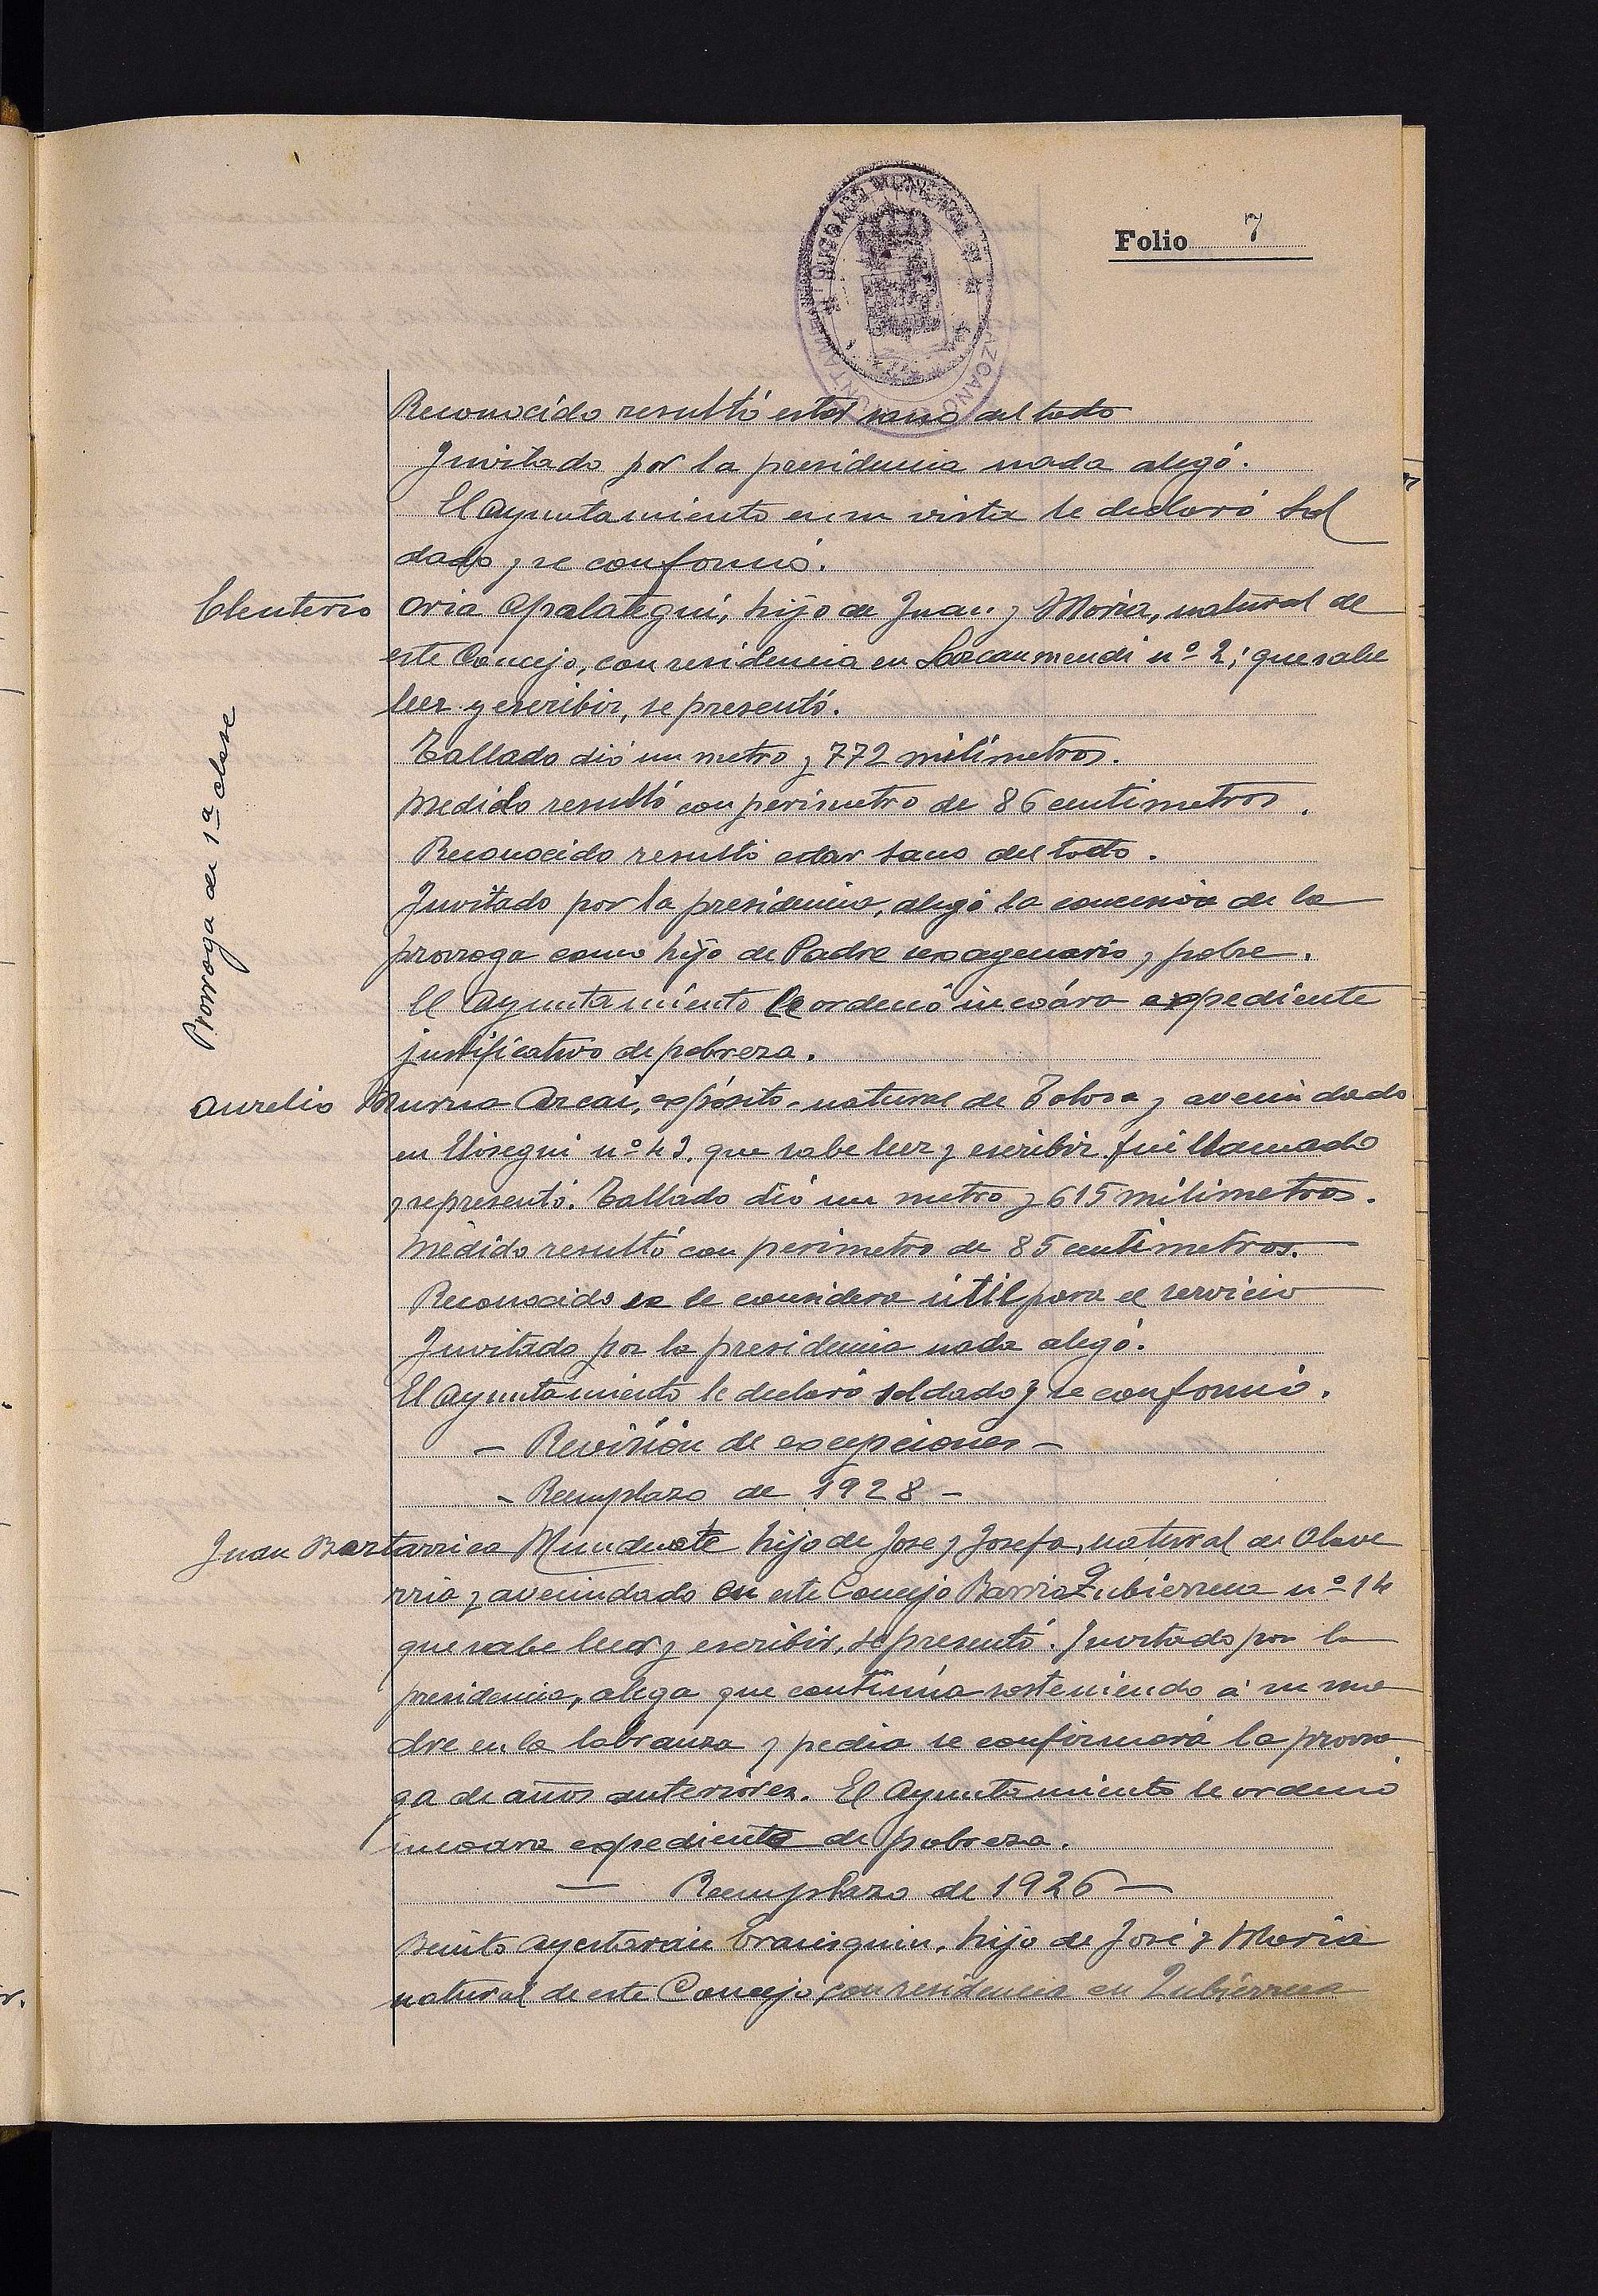 Folio 7
Reconocido resultó estar sano del todo
Invitado por la presidencia nada alegó.
El Ayuntamiento en su vista le declaró Sol
dado y se conformó.
Eleuterio Oria Apalategui, hijo de Juan y Maria, natural de
este Concejo, con residencia en Lazcanmendi nº 2; que sabe
leer y escribir, se presentó.
Tallado dió un metro y 772 milimetros.
Medido resultó con perimetro de 86 centimetros.
Reconocido resultó estar sano del todo.
Prorroga de 1ª clase
Invitado por la presidencia, alegó la concesión de la
prorroga como hijo de Padre sexagenario y pobre.
El Ayuntamiento le ordenó incoára expediente
justificativo de pobreza.
Aurelio Arcai, expósito, natural de Tolosa y avecindado
en nº 43, que sabe leer y escribir, fué llamado
y se presentó. Tallado dió un metro y 615 milimetros.
Medido resultó con perimetro de 85 centimetros.
Reconocido se le considera útil para el servicio
Invitado por la presidencia nada alegó.
El Ayuntamiento le declaró soldado y se conformó.
- Revisión de excepciones -
- Reemplazo de 1928 -
Juan Baztarrica Munduate hijo de Jose y Josefa, natural de Olave
rria y avecindado en este Concejo Barrio Zubierreca nº 14
que sabe leer y escribir, se presentó. Invitado por la
presidencia, alega que continúa sosteniendo á su ma
dre en la labranza y pedia se confirmará la prorro
ga de años anteriores. El Ayuntamiento le ordenó
incoara expediente de pobreza.
- Reemplazo de 1926 -
Benito Ayestarain, hijo de José y Maria
natural de este Concejo, con residencia en Zubierreca